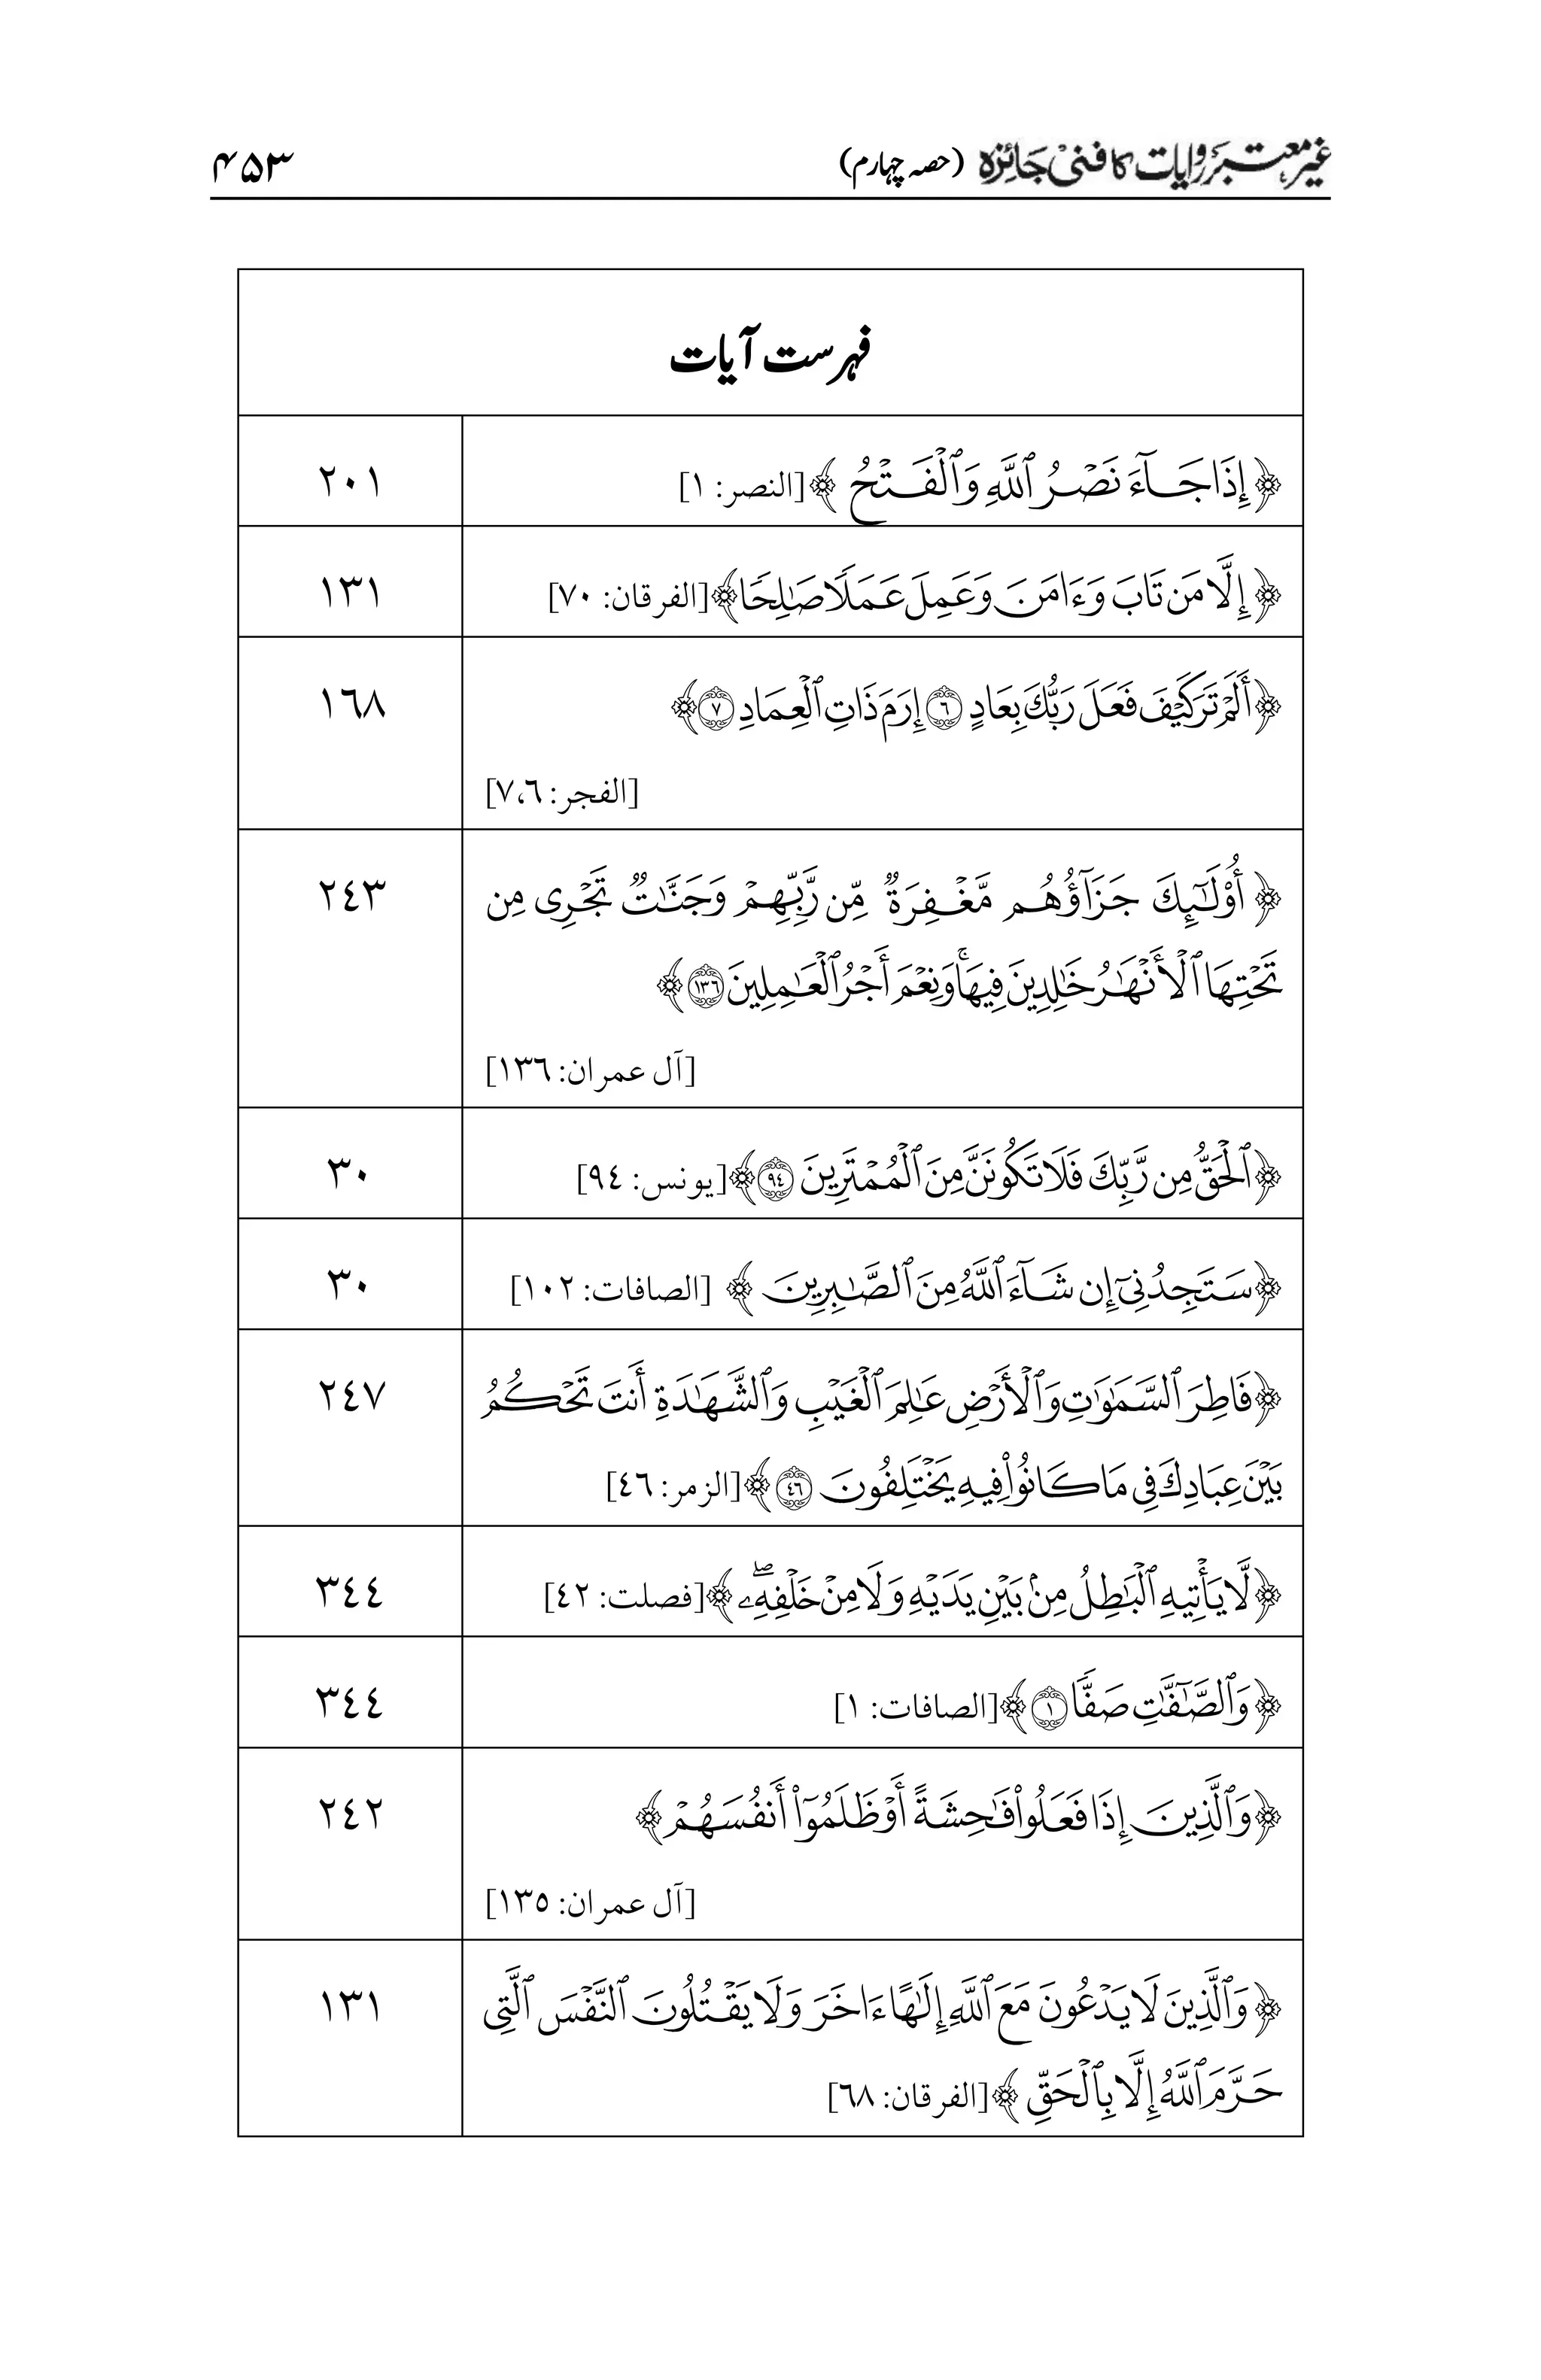 غیر معتبر روایات کا فنی جائزہ (حصہ چہارم) ۴۵۳
فہرست آیات
﴿ إِذَا جَآءَ نَصْرُ ٱللَّهِ وَٱلْفَتْحُ ﴾ [النصر: ١] ٢٠١
﴿ إِلَّا مَن تَابَ وَءَامَنَ وَعَمِلَ عَمَلًا صَٰلِحًا﴾ [الفرقان: ٧٠] ١٣١
﴿أَلَمْ تَرَ كَيْفَ فَعَلَ رَبُّكَ بِعَادٍ ٦ إِرَمَ ذَاتِ ٱلْعِمَادِ ٧﴾ ١٦٨
[الفجر: ٦،٧]
﴿ أُوْلَٰٓئِكَ جَزَآؤُهُم مَّغْفِرَةٌ مِّن رَّبِّهِمْ وَجَنَّٰتٌ تَجْرِى مِن ٢٤٣
تَحْتِهَا ٱلْأَنْهَٰرُ خَٰلِدِينَ فِيهَا ۚ وَنِعْمَ أَجْرُ ٱلْعَٰمِلِينَ ١٣٦ ﴾
[آل عمران: ١٣٦]
﴿ٱلْحَقُّ مِن رَّبِّكَ فَلَا تَكُونَنَّ مِنَ ٱلْمُمْتَرِينَ ٩٤ ﴾ [يونس: ٩٤] ٣٠
﴿سَتَجِدُنِىٓ إِن شَآءَ ٱللَّهُ مِنَ ٱلصَّٰبِرِينَ ﴾ [الصافات: ١٠٢] ٣٠
﴿فَاطِرَ ٱلسَّمَٰوَٰتِ وَٱلْأَرْضِ عَٰلِمَ ٱلْغَيْبِ وَٱلشَّهَٰدَةِ أَنتَ تَحْكُمُ ٢٤٧
بَيْنَ عِبَادِكَ فِى مَا كَانُوا۟ فِيهِ يَخْتَلِفُونَ ٤٦ ﴾ [الزمر: ٤٦]
﴿لَّا يَأْتِيهِ ٱلْبَٰطِلُ مِنۢ بَيْنِ يَدَيْهِ وَلَا مِنْ خَلْفِهِۦۖ ﴾ [فصلت: ٤٢] ٣٤٤
﴿وَٱلصَّٰٓفَّٰتِ صَفًّا ١ ﴾ [الصافات: ١] ٣٤٤
﴿وَٱلَّذِينَ إِذَا فَعَلُوا۟ فَٰحِشَةً أَوْ ظَلَمُوٓا۟ أَنفُسَهُمْ ﴾ ٢٤٢
[آل عمران: ١٣٥]
﴿ وَٱلَّذِينَ لَا يَدْعُونَ مَعَ ٱللَّهِ إِلَٰهًا ءَاخَرَ وَلَا يَقْتُلُونَ ٱلنَّفْسَ ٱلَّتِى ١٣١
حَرَّمَ ٱللَّهُ إِلَّا بِٱلْحَقِّ ﴾ [الفرقان: ٦٨]